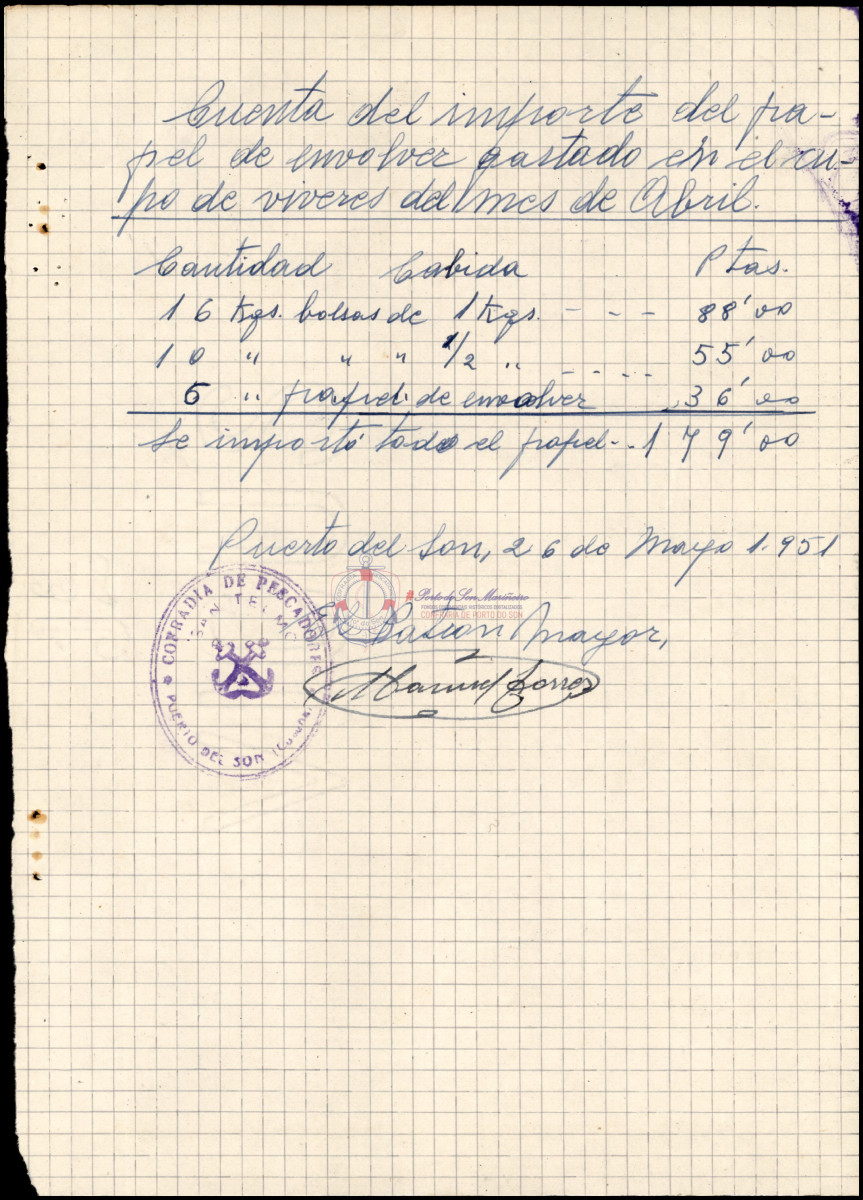 Cuenta del importe del pa-
pel de envolver gastado en el cu-
po de viveres del mes de Abril.
Cantidad Cabida Ptas.
16 Kgs. bolsas de 1 Kgs. - - - 88'00
10 " " " 1/2 " - - - - 55'00
6 " papel de envolver 36'00
Se importó todo el papel - - 179'00
Puerto del Son, 26 de Mayo 1.951
El Patron Mayor,
Manuel
COFRADIA DE PESCADORES
SAN TELMO
PUERTO DEL SON
#Porto do Son Mariñeiro
FONDOS DOCUMENTAIS HISTÓRICOS DIXITALIZADOS
CONFRARÍA DE PORTO DO SON